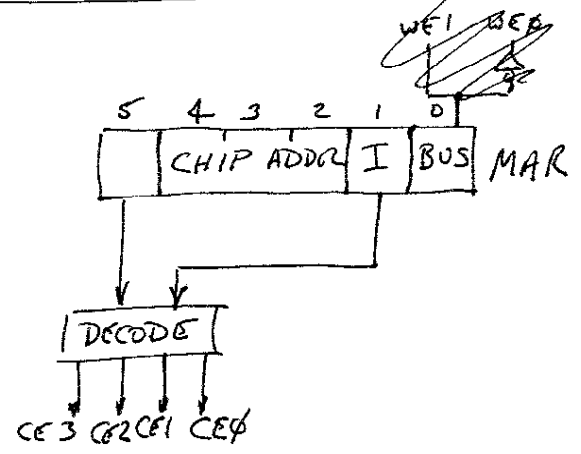 WE1 WEØ
5 4 3 2 1 0
CHIP ADDR I BUS MAR
DECODE
CE3 CE2 CE1 CEØ